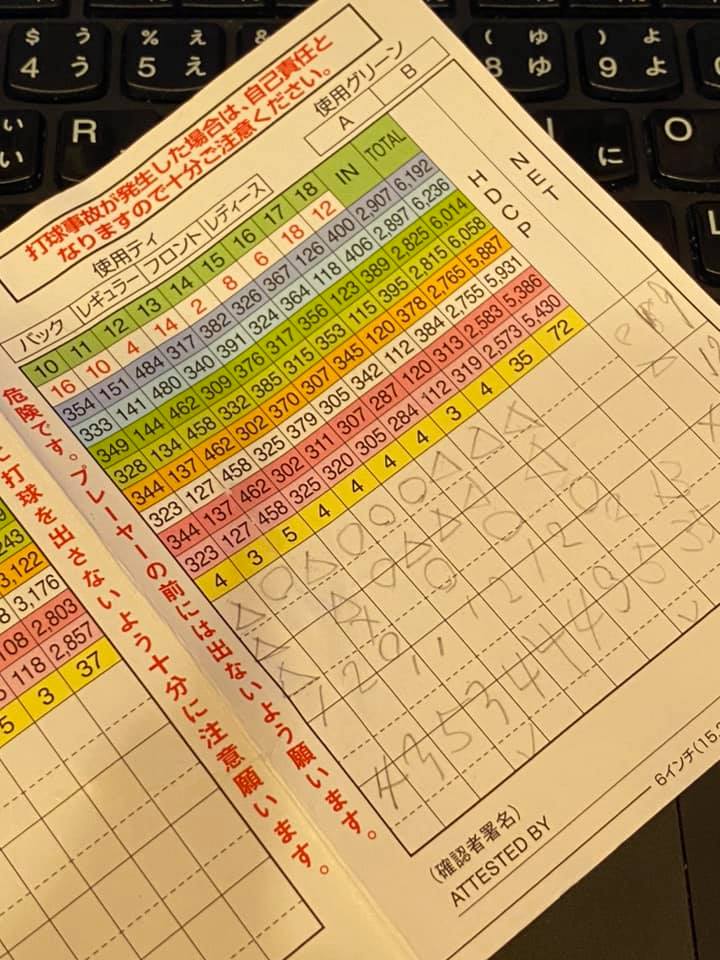 $ う
4 う
% え
5 え
&
( ゆ
8 ゆ
) よ
9 よ
い
い
R
に
O
打球事故が発生した場合は、自己責任と
なりますので十分ご注意ください。
使用グリーン
A B
使用ティ
バック レギュラー フロント レディース
10 11 12 13 14 15 16 17 18 IN TOTAL HDCP NET
16 10 4 14 2 8 6 18 12
354 151 484 317 382 326 367 126 400 2,907 6,192
333 141 480 340 391 324 364 118 406 2,897 6,236
349 144 462 309 376 317 356 123 389 2,825 6,014
328 134 458 332 385 315 353 115 395 2,815 6,058
344 137 462 302 370 307 345 120 378 2,765 5,887
323 127 458 325 379 305 342 112 384 2,755 5,931
344 137 462 302 311 307 287 120 313 2,583 5,386
323 127 458 325 320 305 284 112 319 2,573 5,430
4 3 5 4 4 4 4 3 4 35 72
危険です。プレーヤーの前には出ないよう願います。
打球を出さないよう十分に注意願います。
243
3,122
8 3,176
108 2,803
118 2,857
5 3 37
4 3 5 3 4 4 4
(確認者署名)
ATTESTED BY
6インチ(15.